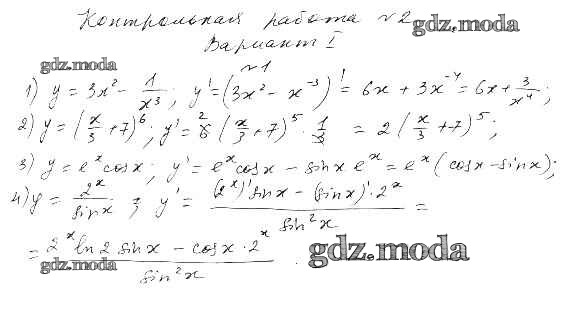 Контрольная работа №2
gdz.moda
Вариант I
gdz.moda
№1
1) y = 3x² - 1/x³; y' = (3x² - x⁻³)' = 6x + 3x⁻⁴ = 6x + 3/x⁴;
2) y = (x/3 + 7)⁶; y' = 6 2 (x/3 + 7)⁵ · 1/3 = 2(x/3 + 7)⁵;
3) y = eˣ cosx; y' = eˣ cosx - sinx eˣ = eˣ(cosx - sinx);
4) y = 2ˣ/sinx; y' = ((2ˣ)' sinx - (sinx)' · 2ˣ)/sin²x =
= (2ˣ ln2 sinx - cosx · 2ˣ)/sin²x.
gdz.moda
gdz.moda